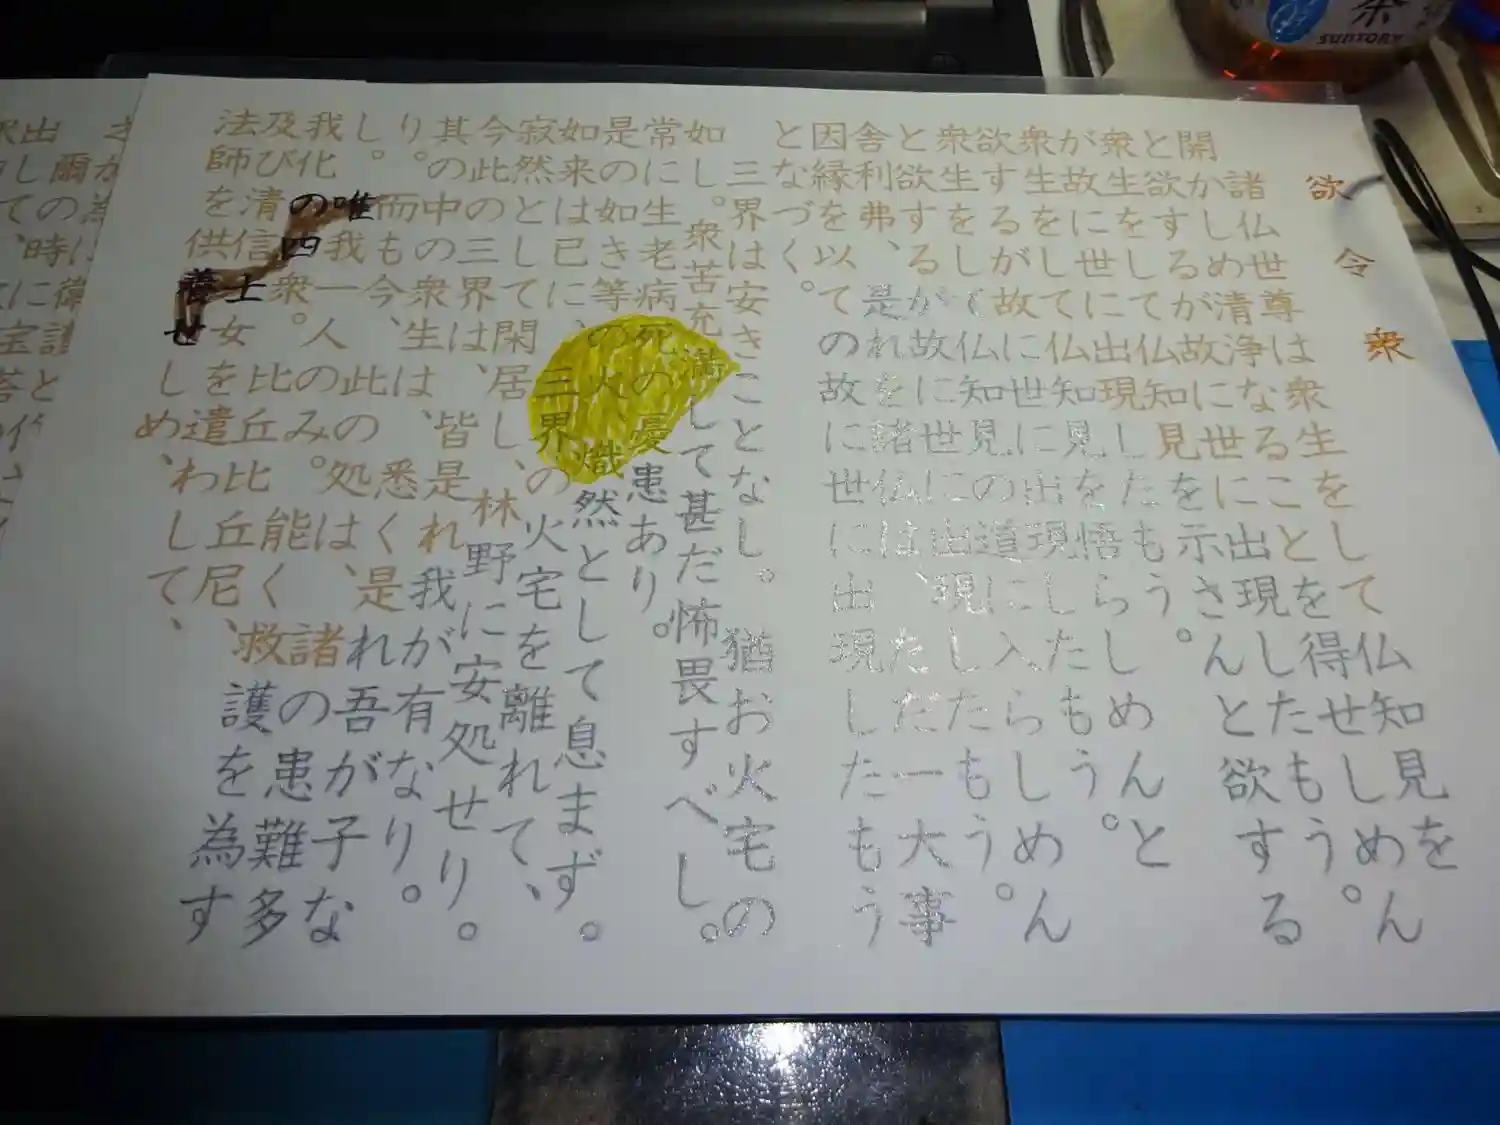 欲令衆
諸仏世尊は衆生をして仏知見を
開かしめ清浄なることを得せしめん。
と欲するが故に世に出現したもう。
衆生をして仏知見を示さんと欲する
が故に世に出現したもう。
衆生をして仏知見を悟らしめんと
欲するが故に世に出現したもう。
衆生をして仏知見の道に入らしめん
と欲するが故に世に出現したもう。
舎利弗、是れを諸仏は、ただ一大事
因縁を以ての故に世に出現したもう
となづく。
三界は安きことなし。猶お火宅の
如し。衆苦充満して甚だ怖畏すべし。
常に生老病死の憂患あり。
是の如き等の火、熾然として息まず。
如来は已に、三界の火宅を離れて、
寂然として閑居し、林野に安処せり。
今此の三界は、皆是れ我が有なり。
其の中の衆生は、悉く是れ吾が子な
り。而も今、此の処は、諸の患難多
し。唯我一人のみ。能く救護を為す
我化の四衆。比丘比丘尼、
及び清信士女を遣わして、
法師を供養せしめ、
SUNTORY